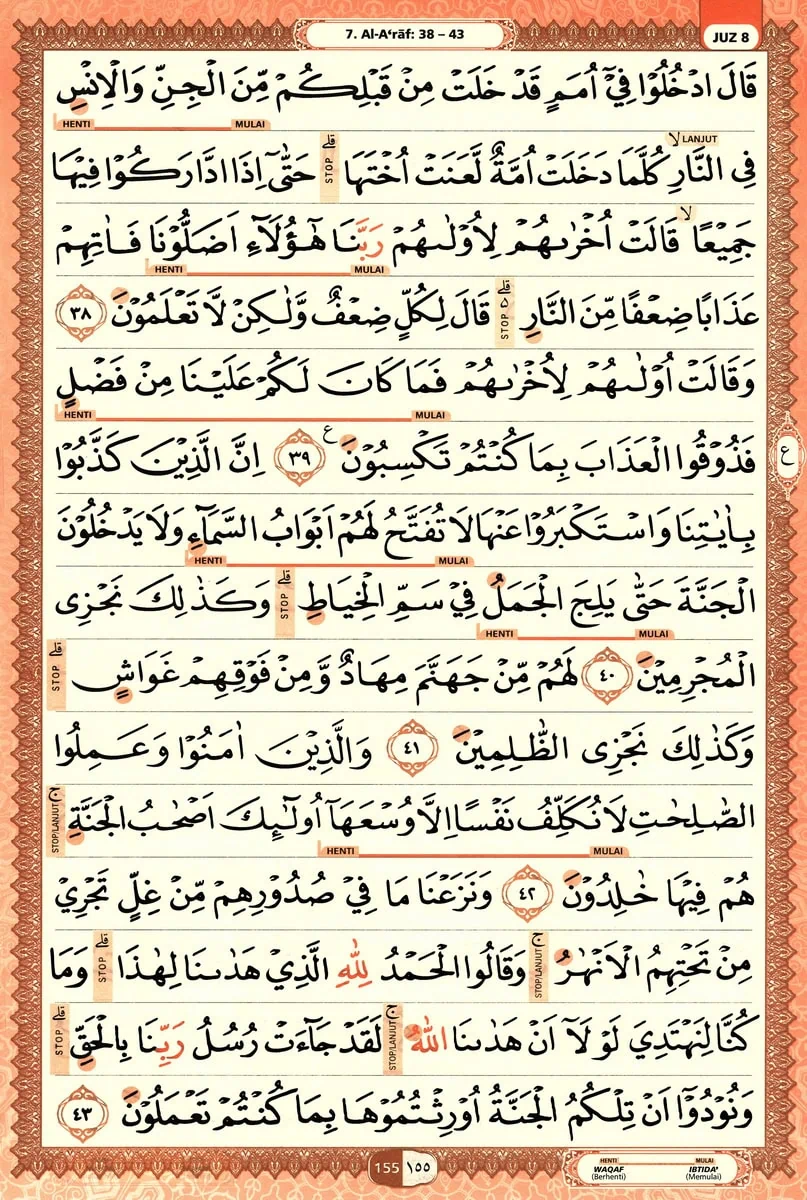 7. Al-A‘rāf: 38 – 43
JUZ 8
قَالَ ادْخُلُوْا فِيْٓ اُمَمٍ قَدْ خَلَتْ مِنْ قَبْلِكُمْ مِّنَ الْجِنِّ وَالْاِنْسِ
HENTI MULAI
فِى النَّارِۙ كُلَّمَا دَخَلَتْ اُمَّةٌ لَّعَنَتْ اُخْتَهَاۗ حَتّٰٓى اِذَا ادَّارَكُوْا فِيْهَا
LANJUT
STOP
جَمِيْعًاۙ قَالَتْ اُخْرٰىهُمْ لِاُوْلٰىهُمْ رَبَّنَا هٰٓؤُلَاۤءِ اَضَلُّوْنَا فَاٰتِهِمْ
HENTI MULAI
عَذَابًا ضِعْفًا مِّنَ النَّارِۗ قَالَ لِكُلٍّ ضِعْفٌ وَّلٰكِنْ لَّا تَعْلَمُوْنَ ٣٨
STOP
وَقَالَتْ اُوْلٰىهُمْ لِاُخْرٰىهُمْ فَمَا كَانَ لَكُمْ عَلَيْنَا مِنْ فَضْلٍ
HENTI MULAI
فَذُوْقُوا الْعَذَابَ بِمَا كُنْتُمْ تَكْسِبُوْنَ ٣٩ ع اِنَّ الَّذِيْنَ كَذَّبُوْا
ع
بِاٰيٰتِنَا وَاسْتَكْبَرُوْا عَنْهَا لَا تُفَتَّحُ لَهُمْ اَبْوَابُ السَّمَاۤءِ وَلَا يَدْخُلُوْنَ
HENTI MULAI
الْجَنَّةَ حَتّٰى يَلِجَ الْجَمَلُ فِيْ سَمِّ الْخِيَاطِۗ وَكَذٰلِكَ نَجْزِى
STOP
HENTI MULAI
الْمُجْرِمِيْنَ ٤٠ لَهُمْ مِّنْ جَهَنَّمَ مِهَادٌ وَّمِنْ فَوْقِهِمْ غَوَاشٍۗ
STOP
وَكَذٰلِكَ نَجْزِى الظّٰلِمِيْنَ ٤١ وَالَّذِيْنَ اٰمَنُوْا وَعَمِلُوا
الصّٰلِحٰتِ لَا نُكَلِّفُ نَفْسًا اِلَّا وُسْعَهَآ اُولٰۤىِٕكَ اَصْحٰبُ الْجَنَّةِۚ
STOP/LANJUT
HENTI MULAI
هُمْ فِيْهَا خٰلِدُوْنَ ٤٢ وَنَزَعْنَا مَا فِيْ صُدُوْرِهِمْ مِّنْ غِلٍّ تَجْرِيْ
مِنْ تَحْتِهِمُ الْاَنْهٰرُۚ وَقَالُوا الْحَمْدُ لِلّٰهِ الَّذِيْ هَدٰىنَا لِهٰذَاۗ وَمَا
STOP/LANJUT STOP
كُنَّا لِنَهْتَدِيَ لَوْلَآ اَنْ هَدٰىنَا اللّٰهُۚ لَقَدْ جَاۤءَتْ رُسُلُ رَبِّنَا بِالْحَقِّۗ
STOP/LANJUT STOP
وَنُوْدُوْٓا اَنْ تِلْكُمُ الْجَنَّةُ اُوْرِثْتُمُوْهَا بِمَا كُنْتُمْ تَعْمَلُوْنَ ٤٣
155 ١٥٥
HENTI MULAI
WAQAF IBTIDA’
(Berhenti) (Memulai)